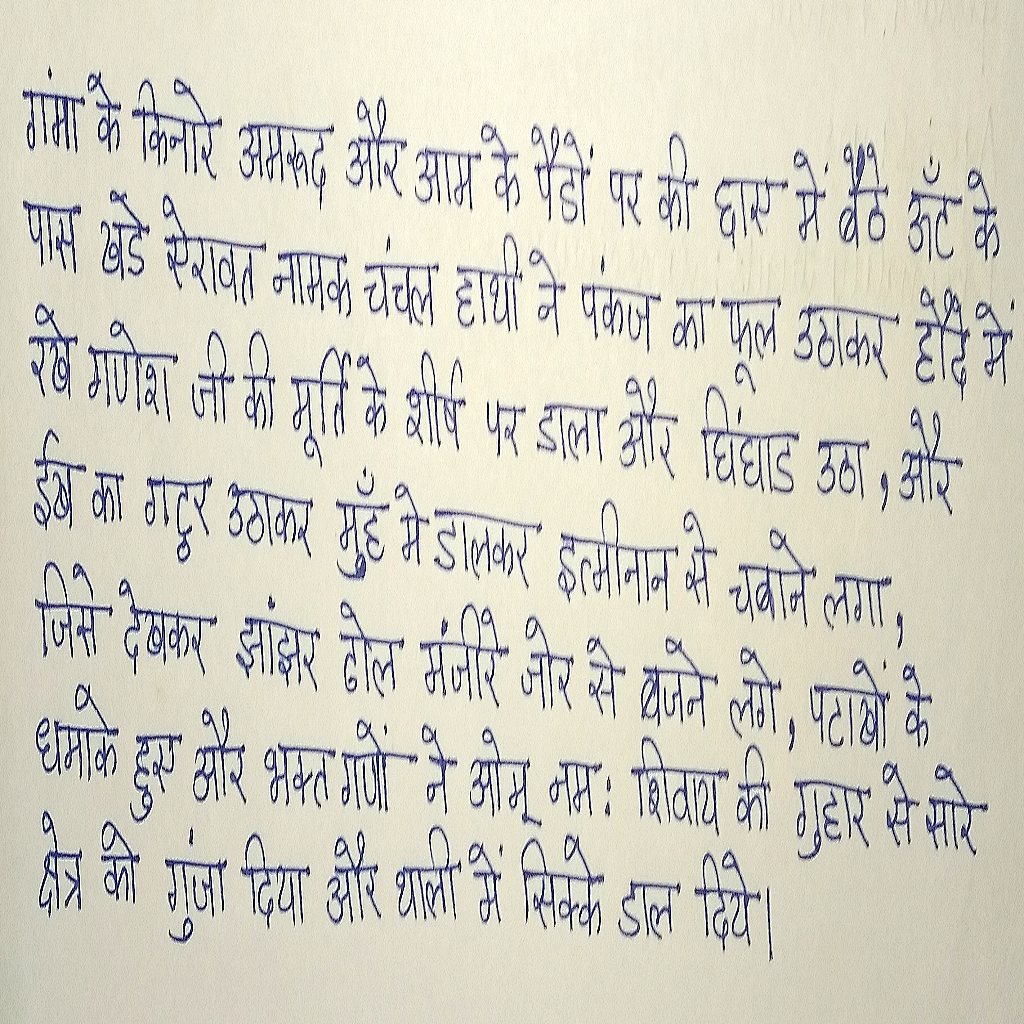 गंगा के किनारे अमरूद और आम के पैडों पर की छाए में बैठे ऊँट के
पास खडे ऐरावत नामक चंचल हाथी ने पंकज का फूल उठाकर हौदे में
रखे गणेश जी की मूर्ति के शीर्ष पर डाला और घिंघाड उठा, और
ईख का गट्ठर उठाकर मुँह मे डालकर इत्मीनान से चबाने लगा,
जिसे देखकर झांझर ढोल मंजीरे जोर से बजने लगे, पटाखों के
धमाके हुए और भक्त गणों ने ओम् नम: शिवाय की गुहार से सारे
क्षेत्र को गुंजा दिया और थाली में सिक्के डाल दिये।